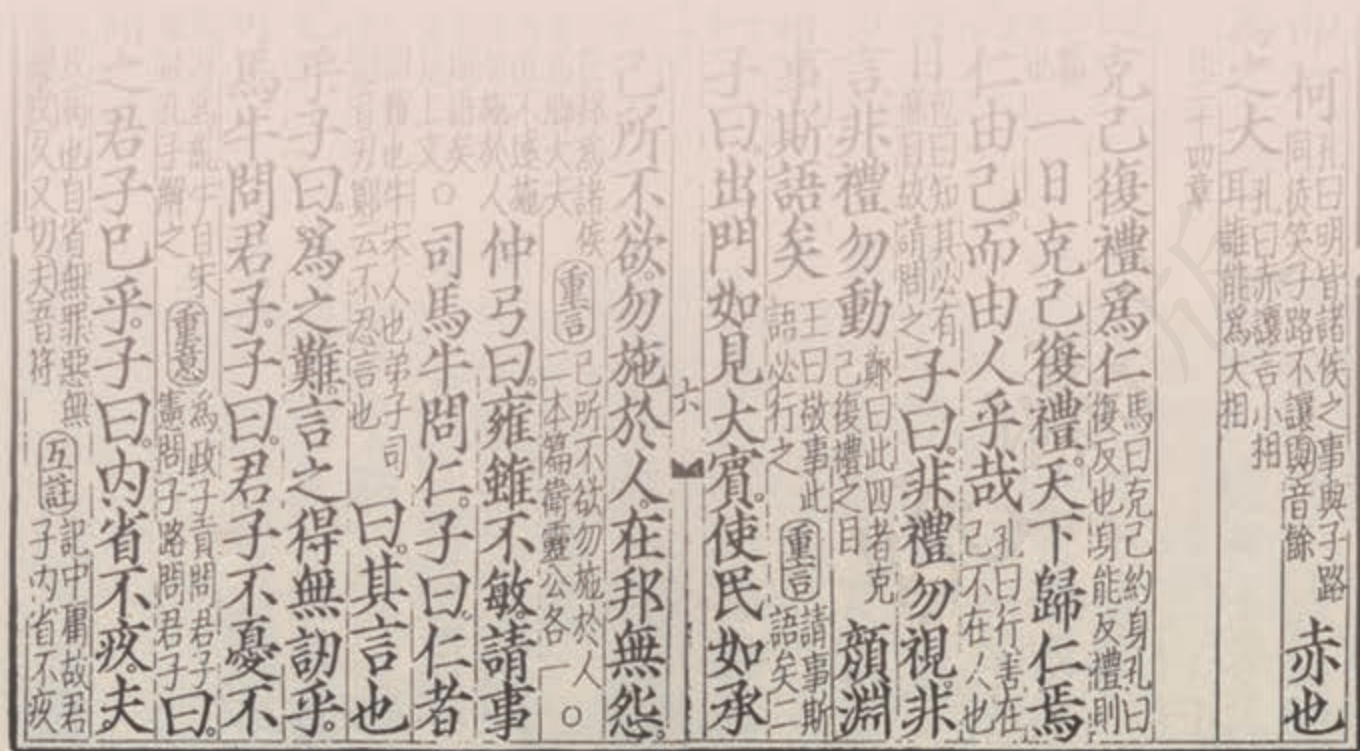 何 孔曰明皆諸侯之事與子路
同徒笑子路不讓與音餘 赤也
之大 孔曰赤讓言小相
耳誰能爲大相
二十四章
克己復禮爲仁 馬曰克己約身孔曰
復反也身能反禮則
一日克己復禮。天下歸仁焉
仁由己。而由人乎哉 孔曰行善在
己不在人也
包曰知其必有
條目故請問之 子曰。非禮勿視。非
言非禮勿動 鄭曰此四者克
己復禮之目 顏淵
事斯語矣 王曰敬事此
語必行之 重言 請事斯
語矣二
子曰。出門如見大賓。使民如承
六
己所不欲。勿施於人。在邦無怨。
在邦爲諸侯
大夫 重言 己所不欲勿施於人
二本篇衛靈公各一 ○
仲弓曰。雍雖不敏。請事
語矣
上文 ○ 司馬牛問仁。子曰。仁者
也牛宋人也弟子司
鄭云不忍言也 曰。其言也
乎子曰。爲之難。言之得無訒乎。
馬牛問君子。子曰。君子不憂不
牛自宋
孔子解之 重意 爲政子貢問君子
憲問子路問君子 曰。
之君子已乎。子曰。内省不疚。夫
也自省無罪惡無
久又切夫音符 互註 記中庸故君
子内省不疚